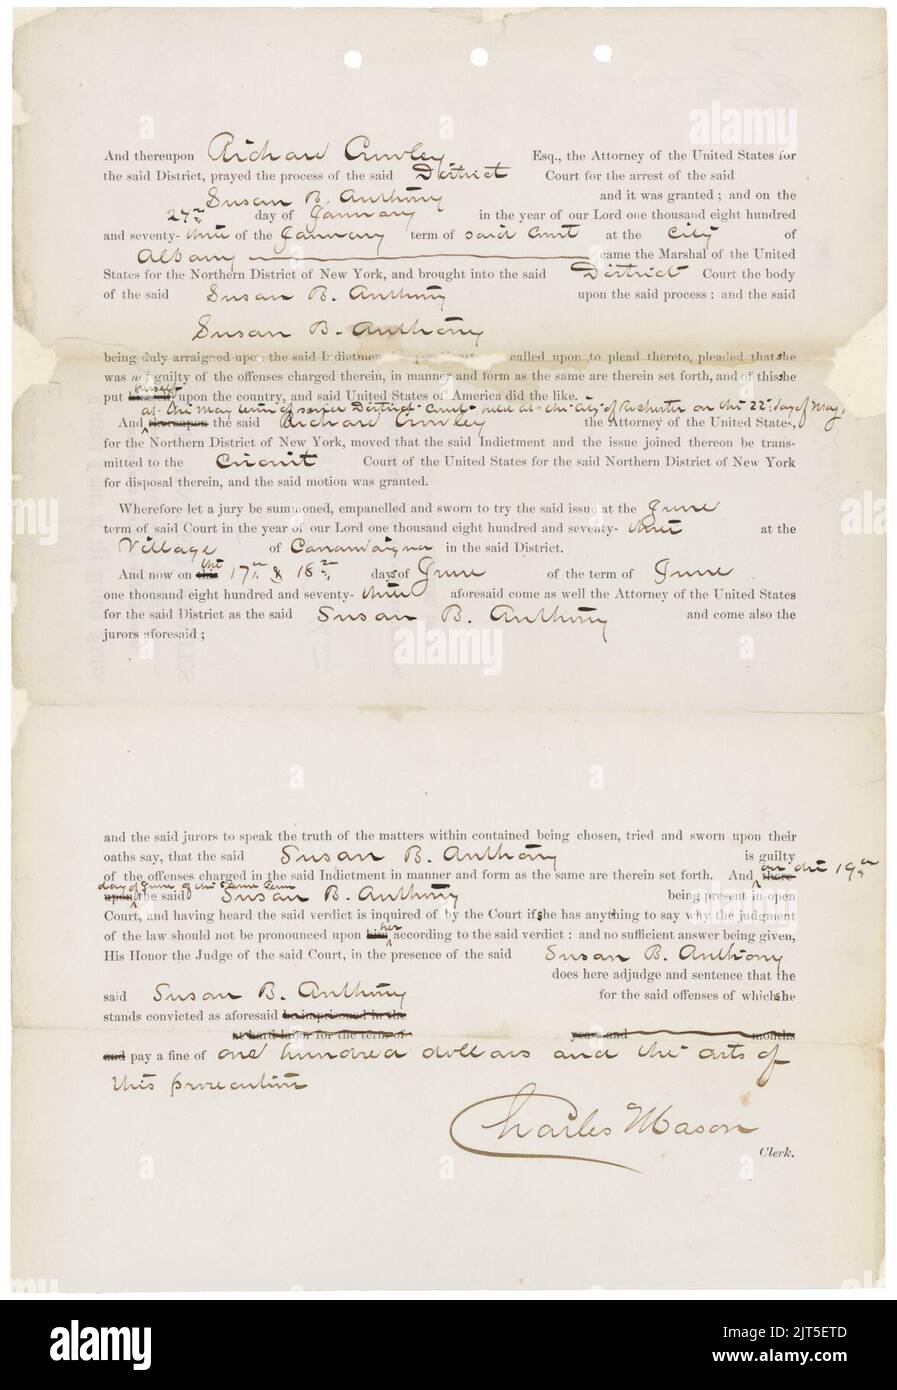 And thereupon Richard Crowley Esq., the Attorney of the United States for
the said District, prayed the process of the said District Court for the arrest of the said
Susan B. Anthony and it was granted ; and on the
27th day of January in the year of our Lord one thousand eight hundred
and seventy- three of the January term of said Court at the City of
Albany came the Marshal of the United
States for the Northern District of New York, and brought into the said District Court the body
of the said Susan B. Anthony upon the said process : and the said
Susan B. Anthony
being duly arraigned upon the said Indictment called upon to plead thereto, pleaded that she
was not guilty of the offenses charged therein, in manner and form as the same are therein set forth, and of this she
put herself upon the country, and said United States of America did the like.
at the May term of said District Court held at the City of Rochester on the 22d. day of May,
And thereupon the said Richard Crowley the Attorney of the United States,
for the Northern District of New York, moved that the said Indictment and the issue joined thereon be trans-
mitted to the Circuit Court of the United States for the said Northern District of New York
for disposal therein, and the said motion was granted.
Wherefore let a jury be summoned, empanelled and sworn to try the said issue at the June
term of said Court in the year of our Lord one thousand eight hundred and seventy- three at the
Village of Canandaigua in the said District.
And now on this the 17th & 18th days of June of the term of June
one thousand eight hundred and seventy- three aforesaid come as well the Attorney of the United States
for the said District as the said Susan B. Anthony and come also the
jurors aforesaid ;
and the said jurors to speak the truth of the matters within contained being chosen, tried and sworn upon their
oaths say, that the said Susan B. Anthony is guilty
of the offenses charged in the said Indictment in manner and form as the same are therein set forth. And there on the 19th
day of June of the same term
upon the said Susan B. Anthony being present in open
Court, and having heard the said verdict is inquired of by the Court if she has anything to say why the judgment
of the law should not be pronounced upon him her according to the said verdict : and no sufficient answer being given,
His Honor the Judge of the said Court, in the presence of the said Susan B. Anthony
does here adjudge and sentence that the
said Susan B. Anthony for the said offenses of which she
stands convicted as aforesaid be imprisoned in the
at hard labor for the term of years and months
and pay a fine of one hundred dollars and the costs of
this prosecution
Charles Mason
Clerk.
alamy
alamy
alamy
alamy
Image ID: 2JT5ETD
www.alamy.com